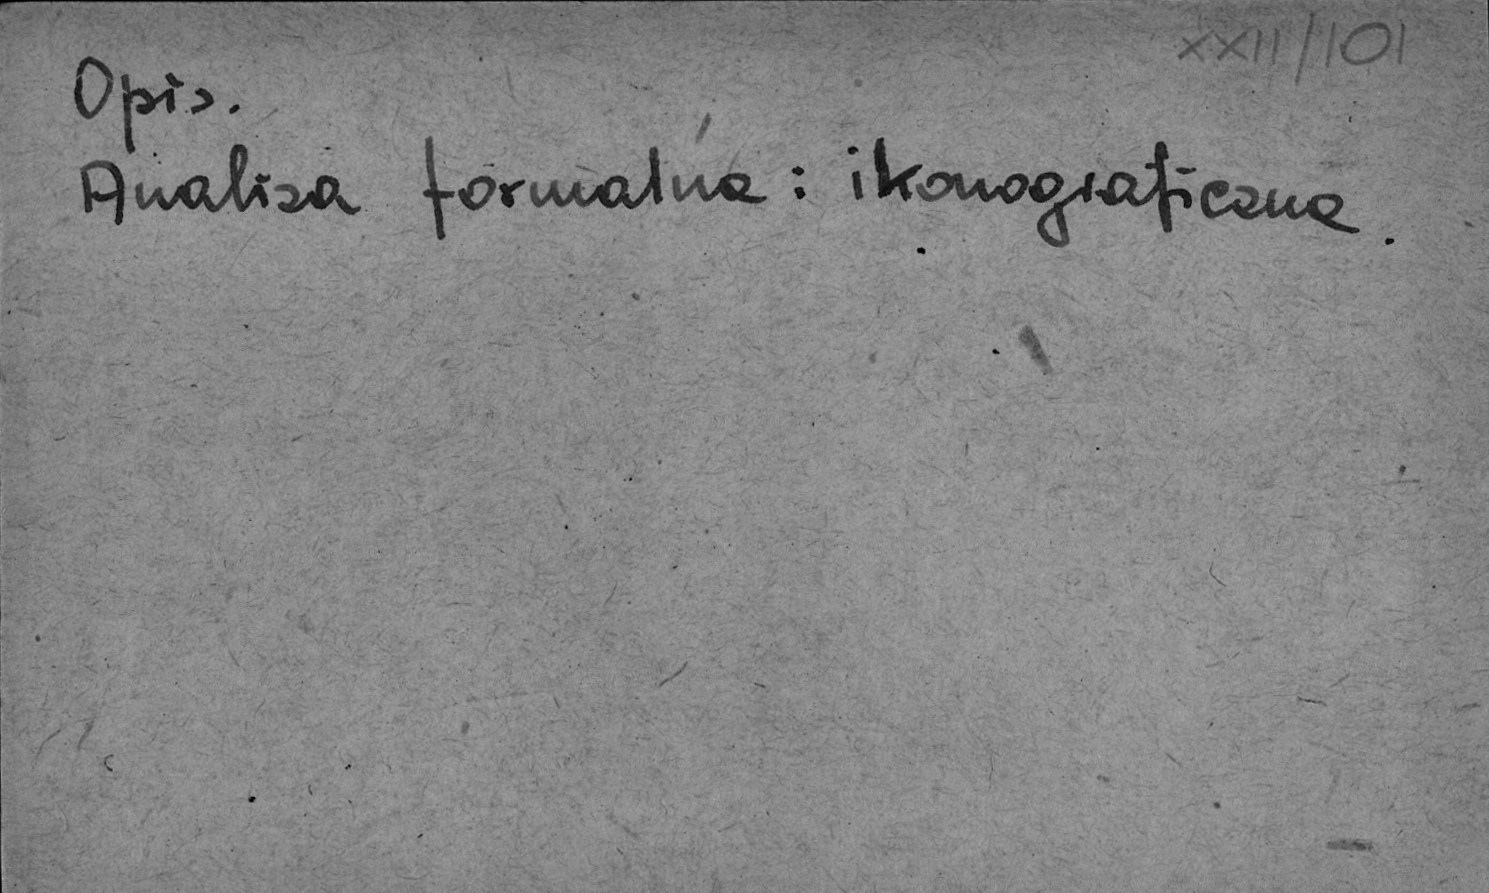 XXII/101
Opis.
Analiza formalna : ikonograficzna.